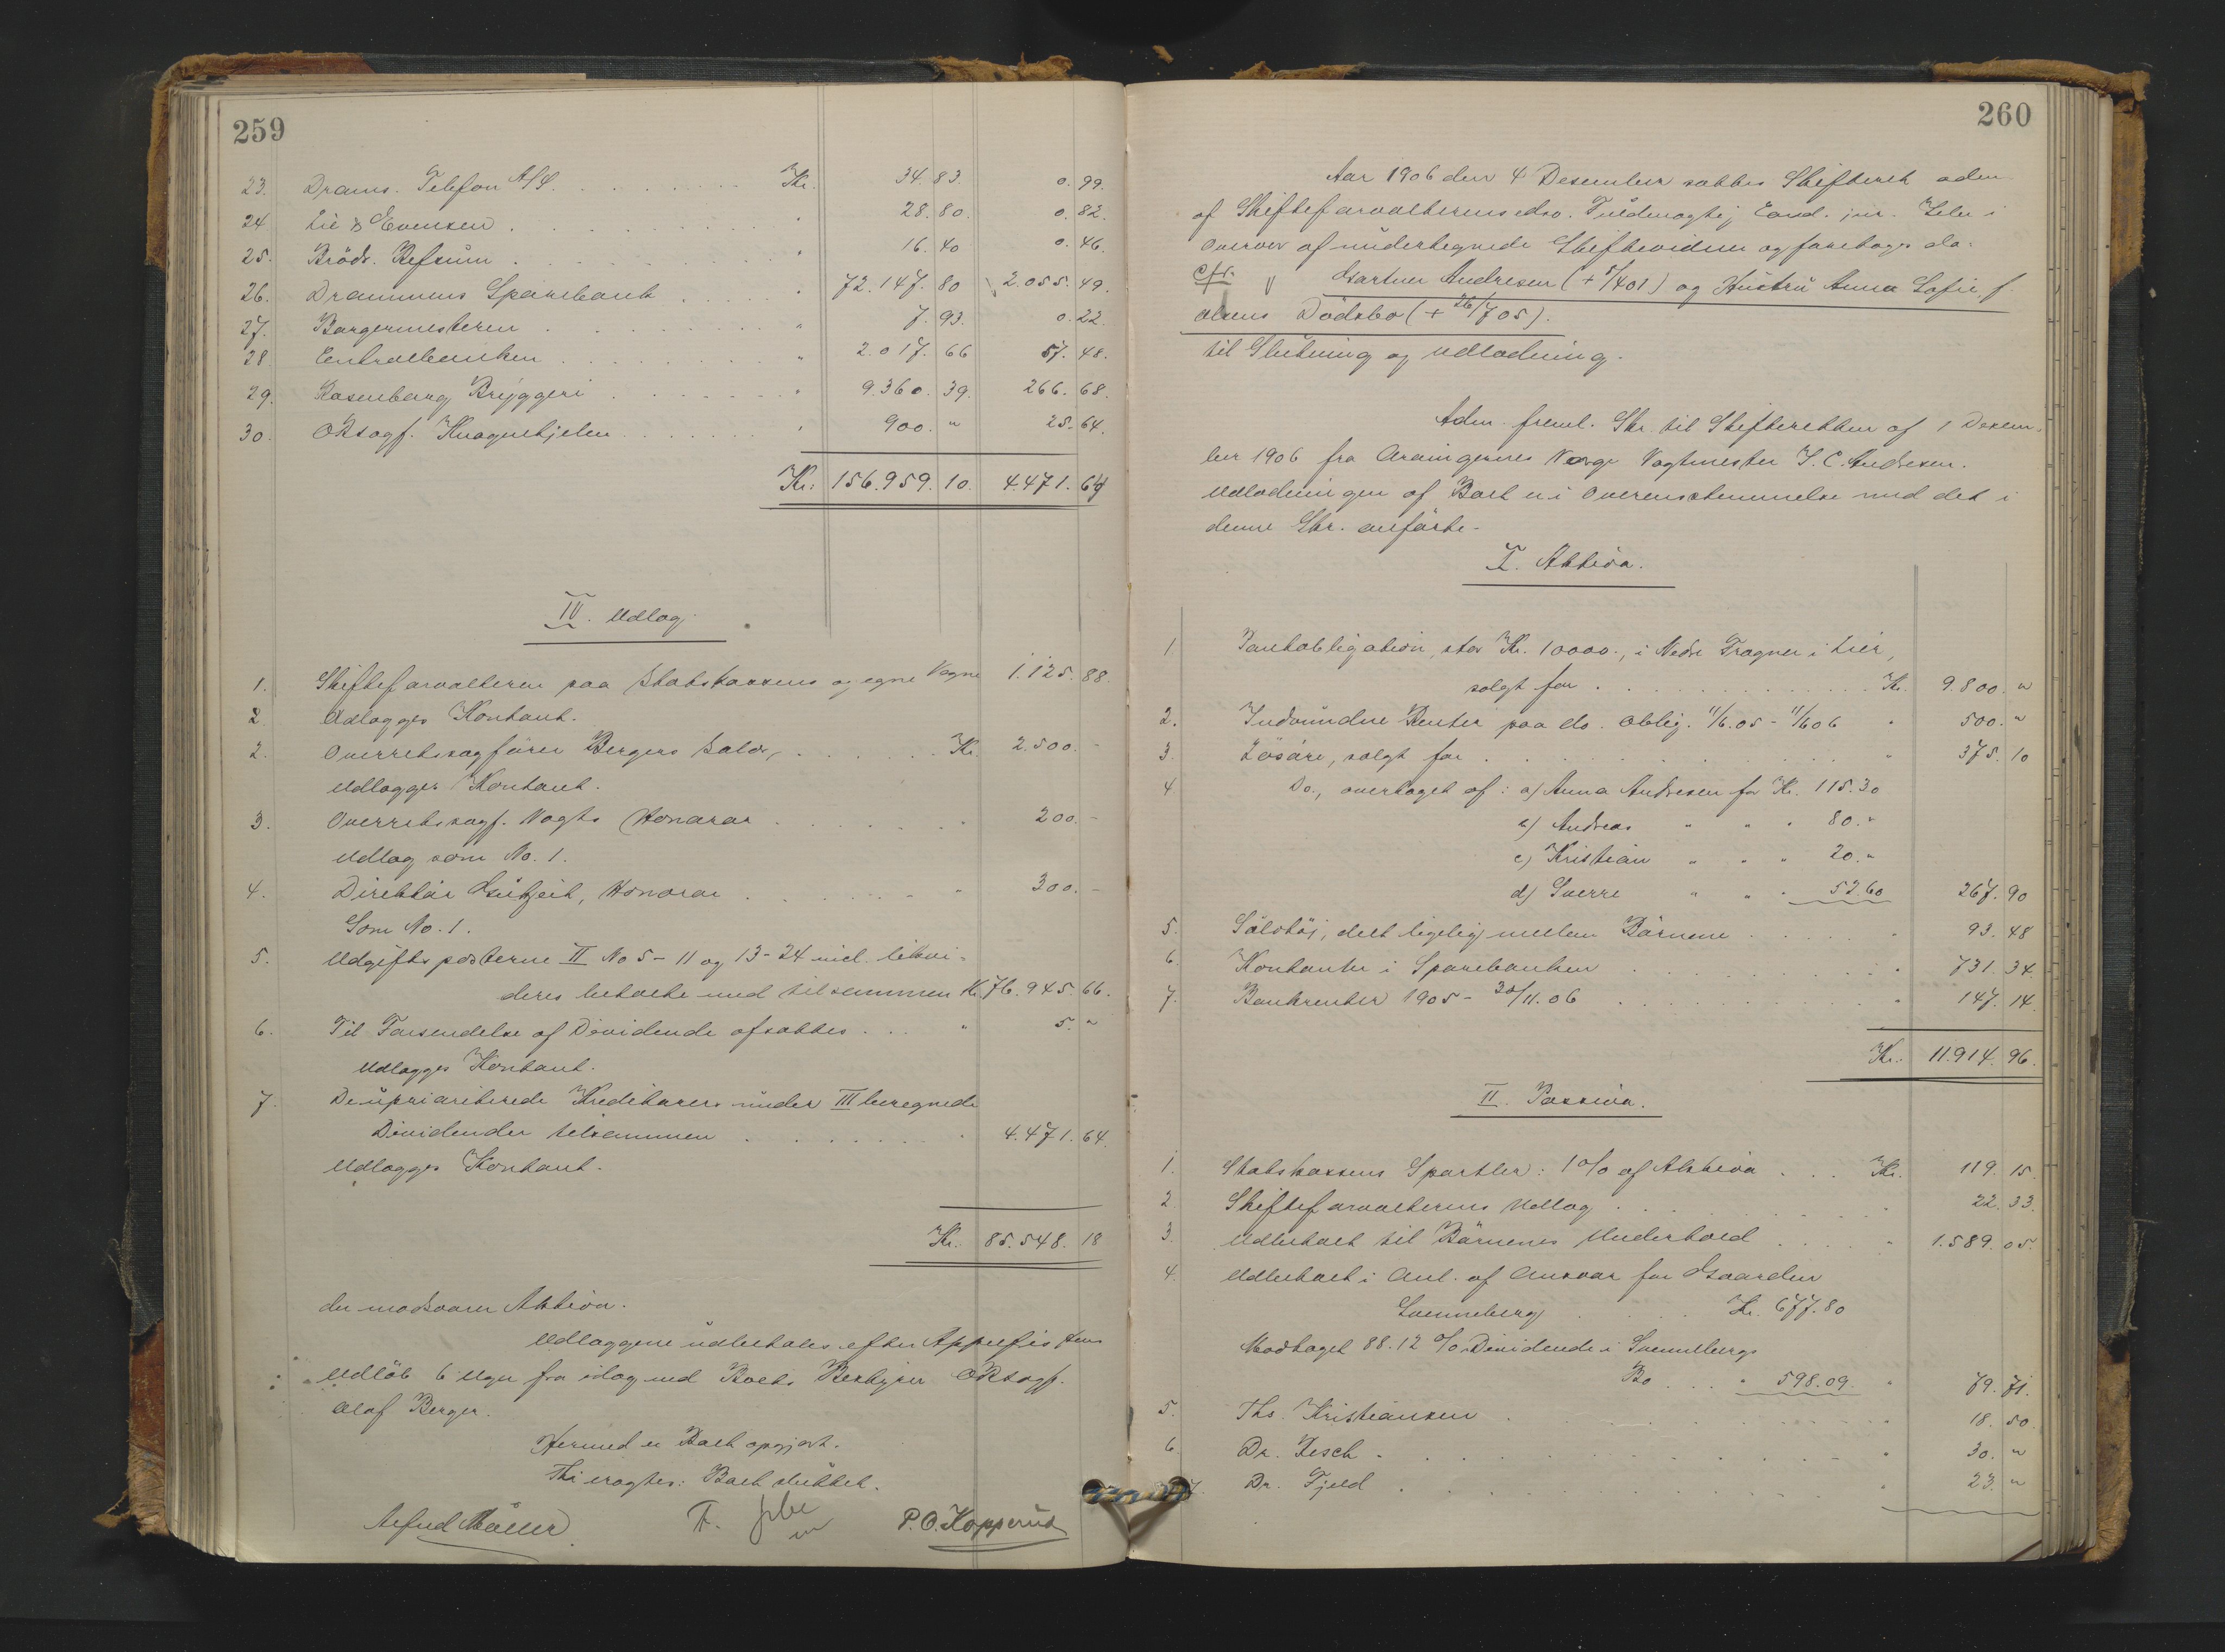 259
23. Drams. Telefon A/S. Kr. 34.83. 0.99.
24. Lie & Evensen " 28.80. 0.82.
25. Brödr. Refsum " 16.40 0.46.
26. Drammens Sparebank " 72.147.80 2.055.49.
27. Borgermesteren " 7.93. 0.22.
28. Centralbanken " 2.017.66 57.48.
29. Rosenborg Bryggeri " 9.360.39. 266.68.
30. ORsagf. " 900. " 25.64.
Kr: 156.959.10. 4.471.64
IV. Udlæg
1. Skifteforvalteren paa Statskassens og egne Vegne 1.125.88.
2. Udlægges Kontant.
2. Overretssagförer Bergers Salær, Kr. 2.500. -
Udlægges Kontant.
3. Overretssagf. Vogts Honorar " 200. -
Udlæg som No. 1.
4. Direktör Honorar " 300. -
Som No. 1.
5. Udgiftsposterne II No 5 - 11 og 13 - 24 incl. likvi-
deres betalte med tilsammen Kr. 76.945.66.
6. Til Forsendelse af Dividende afsættes " 5. "
Udlægges Kontant.
7. De upriariterede Kreditorers under III beregnede
Dividender tilsammen " 4.471.64.
Udlægges Kontant.
Kr. 85.548.18
der modsvarer Aktiva.
Udlæggene udbetales efter Appelfristens
Udløb 6 Uger fra idag ved Boets Bestyrer ORsagf.
Olaf Berger.
Hermed er Boet opgjort.
Thi eragtes: Boet sluttet.
P. O. Kopperud
260
Aar 1906 den 4 Desember sattes Skifteret adm.
af Skifteforvalterens edsv. Fuldmægtig Cand. jur. i
Overvær af undertegnede Skiftevidner og foretoges da:
Gartner Andresen (+ 5/4 01) og Hustru Anna Sofie f.
Olsens Dødsbo (+ 26/7 05).
til Slutning og Udlodning.
Adm. freml. Skr. til Skifteretten af 1 Desem-
ber 1906 fra Arvingernes Værge Vagtmester J. C. Andresen.
Udlodningen af Boet er i Overensstemmelse med det i
denne Skr. anførte.
I. Aktiva.
1. Pantobligation, stor Kr. 10000., i Nedre Frogner i Lier,
solgt for Kr. 9.800. "
2. Indvundne Renter paa do. Oblig. 11/6.05 - 11/6 06 " 500. "
3. Løsøre, solgt for " 375.10
4. Do., overtaget af: a) Anna Andresen for Kr. 115.30
b) Andreas " " " 80. "
c) Kristian " " " 20. "
d) Sverre " " " 52.60 267.90
5. Sølvtøj, delt ligelig mellem Børnene " 93.48
6. Kontanter i Sparebanken " 731.34.
7. Bankrenter 1905 - 30/11.06 " 147.14.
Kr.: 11.914.96.
II. Passiva.
1. Statskassens Sportler: 1% af Aktiva Kr. 119.15.
2. Skifteforvalterens Udlæg " 22.33.
3. Udbetalt til Børnenes Underhold " 1.589.05.
4. Udbetalt i Anl. af Ansvar for Gaarden
Svenneberg Kr. 677.80
Modtaget 88.12% Dividende i Svennebergs
Bo " 598.09. " 79.71.
5. Ths. Kristiansen " 18.50
6. Dr. Resch " 30. "
7. Dr. Fjeld " 23. "